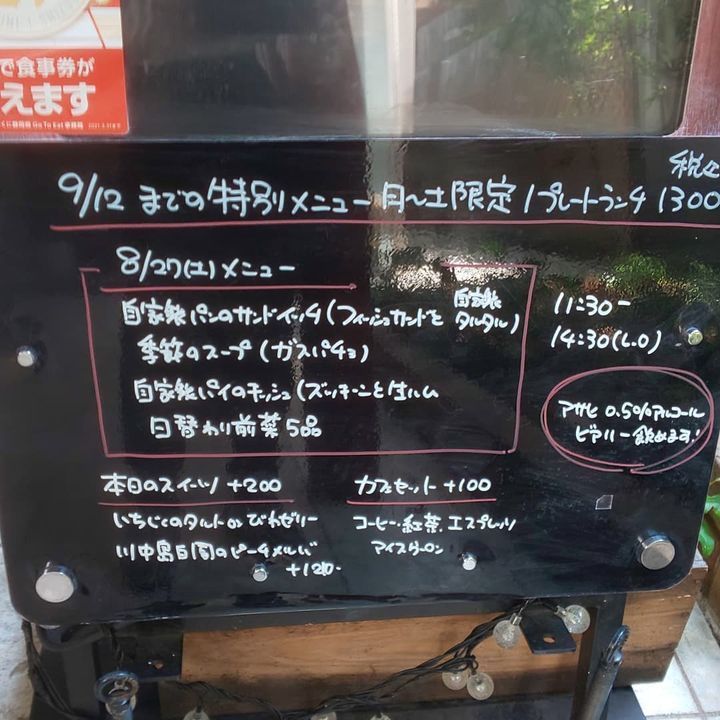 で食事券が
えます
Go To Eat
税込
9/12 までの特別メニュー 月〜土限定 1プレートランチ 1300
8/27(土)メニュー
自家製パンのサンドイッチ(フィッシュカツサンドと 自家製タルタル)
季節のスープ(ガスパチョ)
自家製パイのキッシュ(ズッキーニと生ハム
日替わり前菜5品
11:30-
14:30(L.O)
アサヒ 0.5%アルコール
ビアリー飲めます!
本日のスイーツ +200
いちじくのタルト or びわゼリー
川中島白桃のピーチメルバ
+120-
カフェセット +100
コーヒー・紅茶、エスプレッソ
アイスウーロン